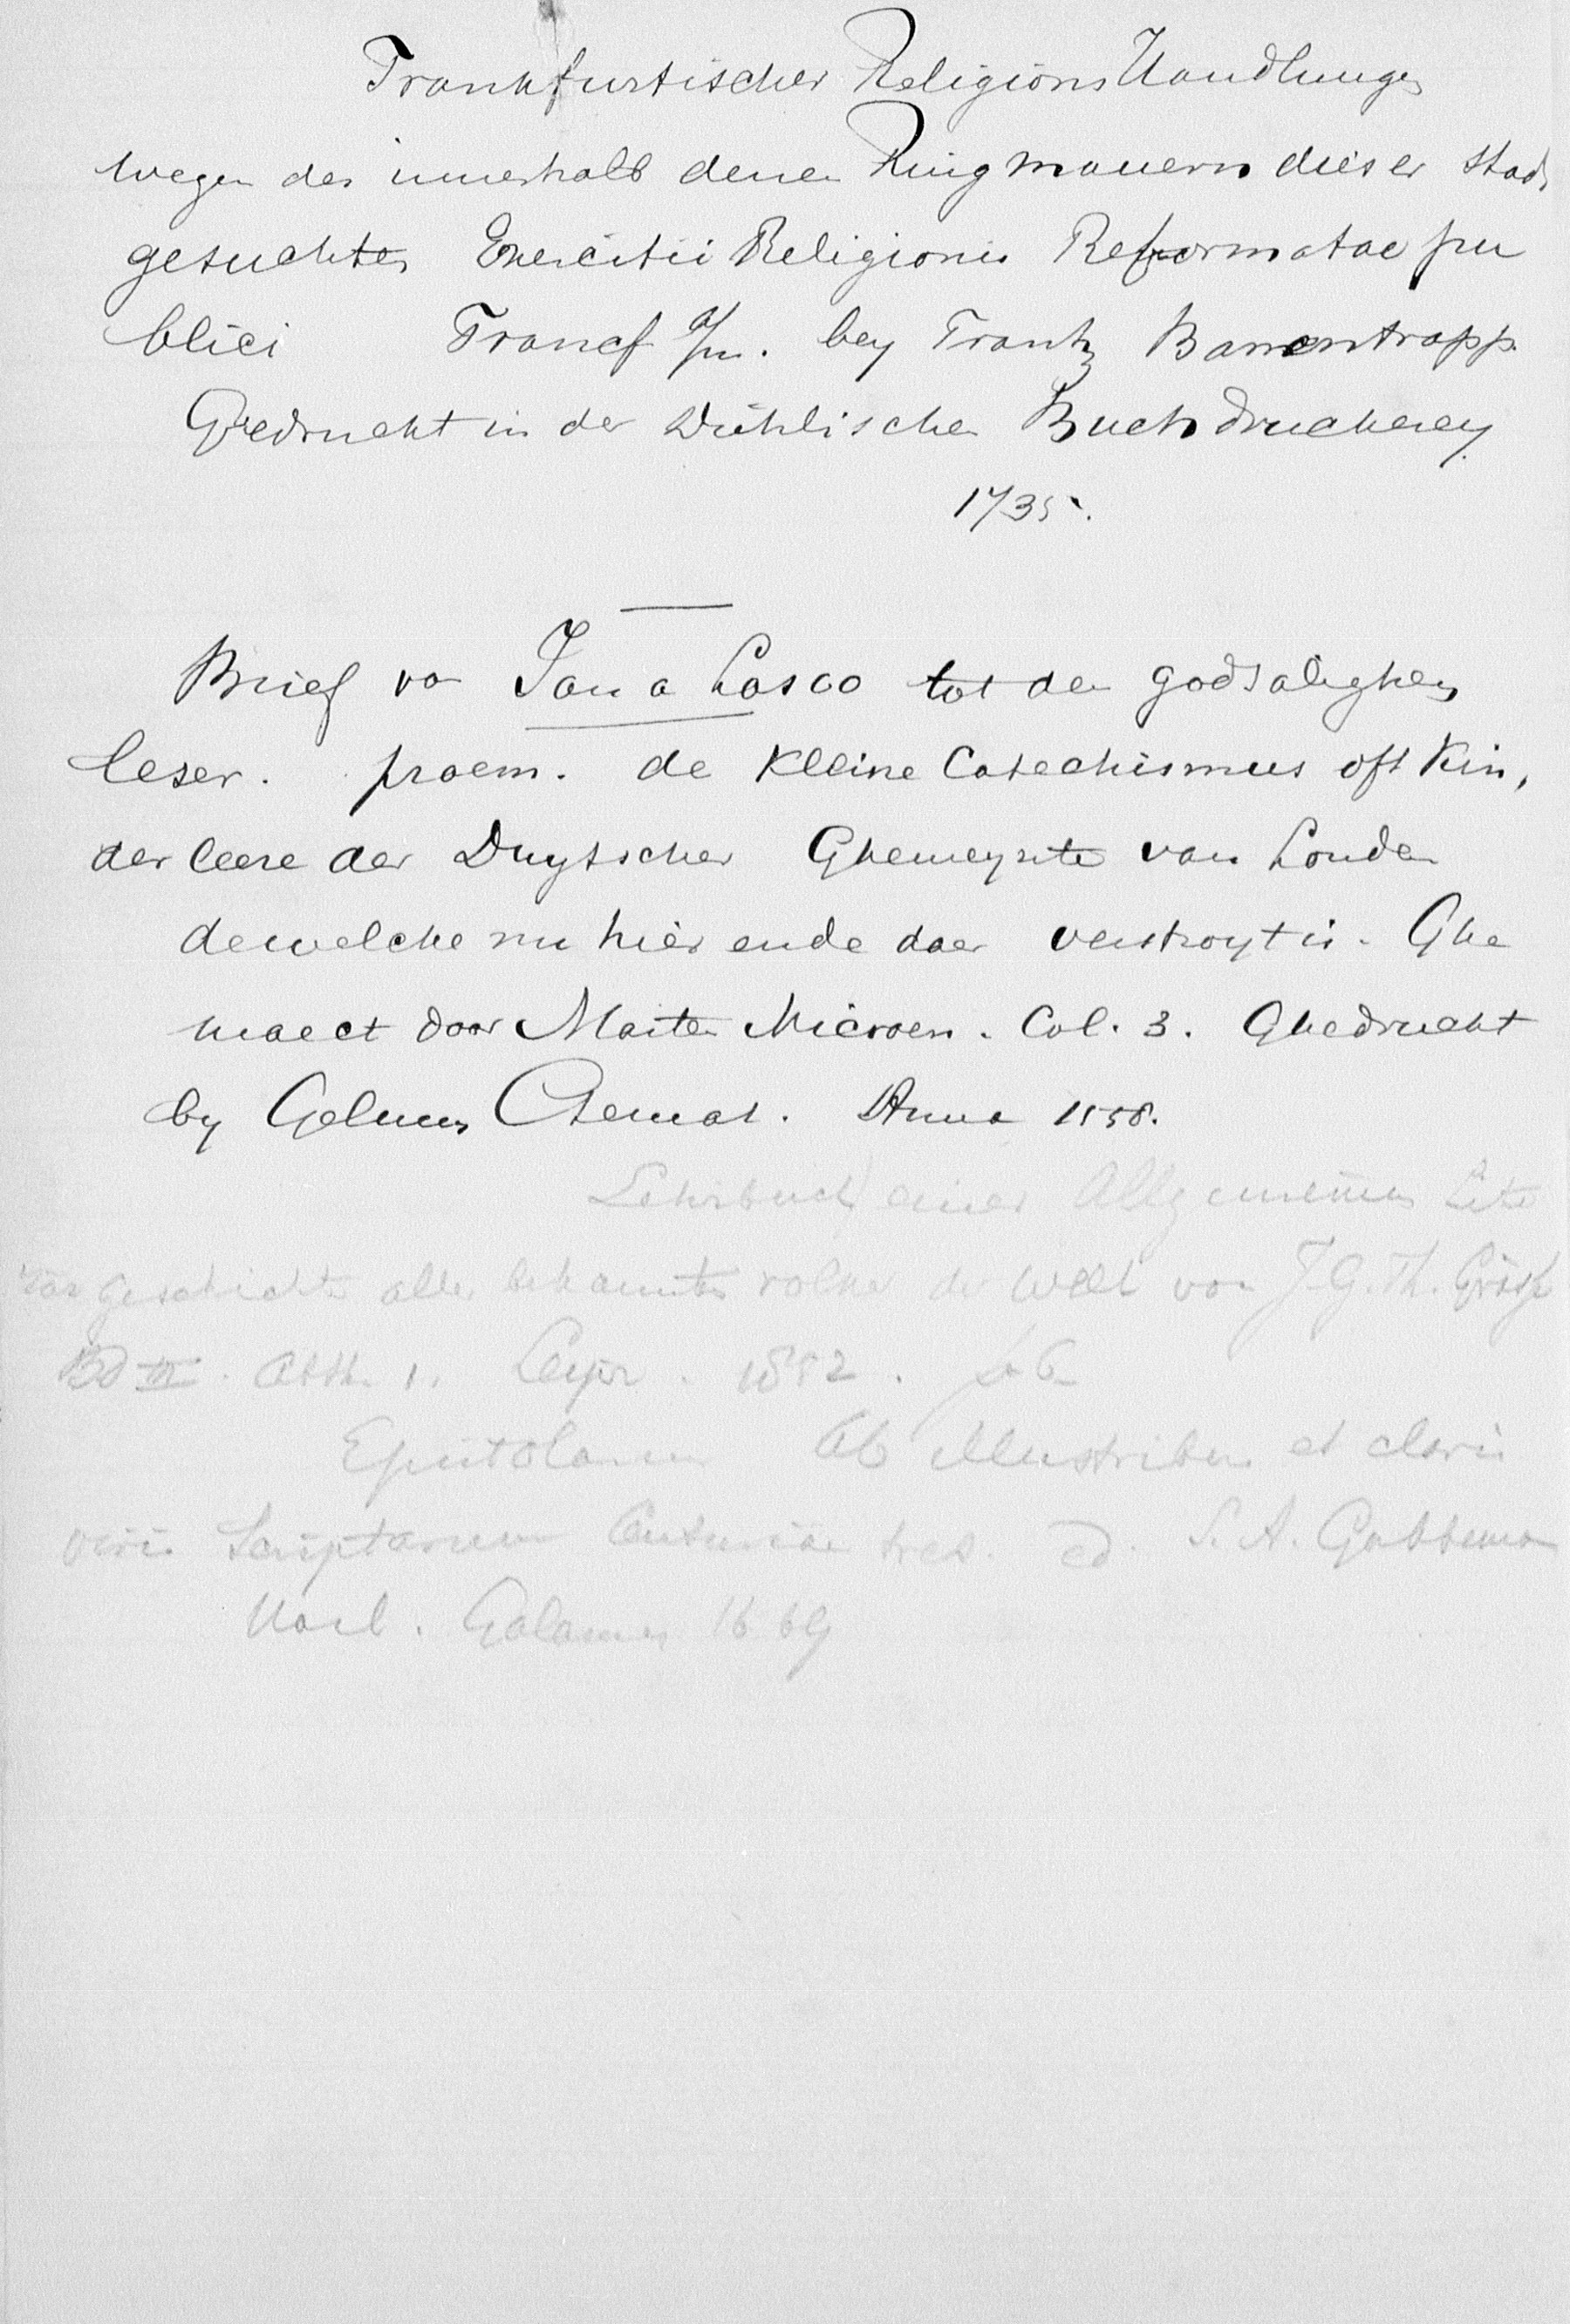 Frankfurtischer Religions Handlungen
wegen des innerhalb denen Ringmauern dieser Stadt
gesuchten Exercitii Religionis Reformatae pu
blici Francf a/m. bey Frantz Barrentrapp.
Gedruckt in der Dühlischen Buchdruckerey.
1735.
Brief va Jan a Lasco tot den godsalighen
leser. proem. de Kleine Catechismus oft Kin,
der leere der Duytscher Ghemeynte van Londen
dewelche nu hier ende daer verstroyt is. Ghe
maect door Marten Micron. Col. 3. Ghedruckt
by Gelium Ctemat. Anno 1558.
Lehrbuch einer Allgemeinen Lite
rar geschichte aller bekannten volker der Welt von J. G. Th. Grässe
Bd III. Abth. 1. Leipz. 1852.
Epistolarum Ab illustribus et claris
viris Scriptarum Centuriae tres. ed. S. A. Gabbema
Harl. Galama 1669